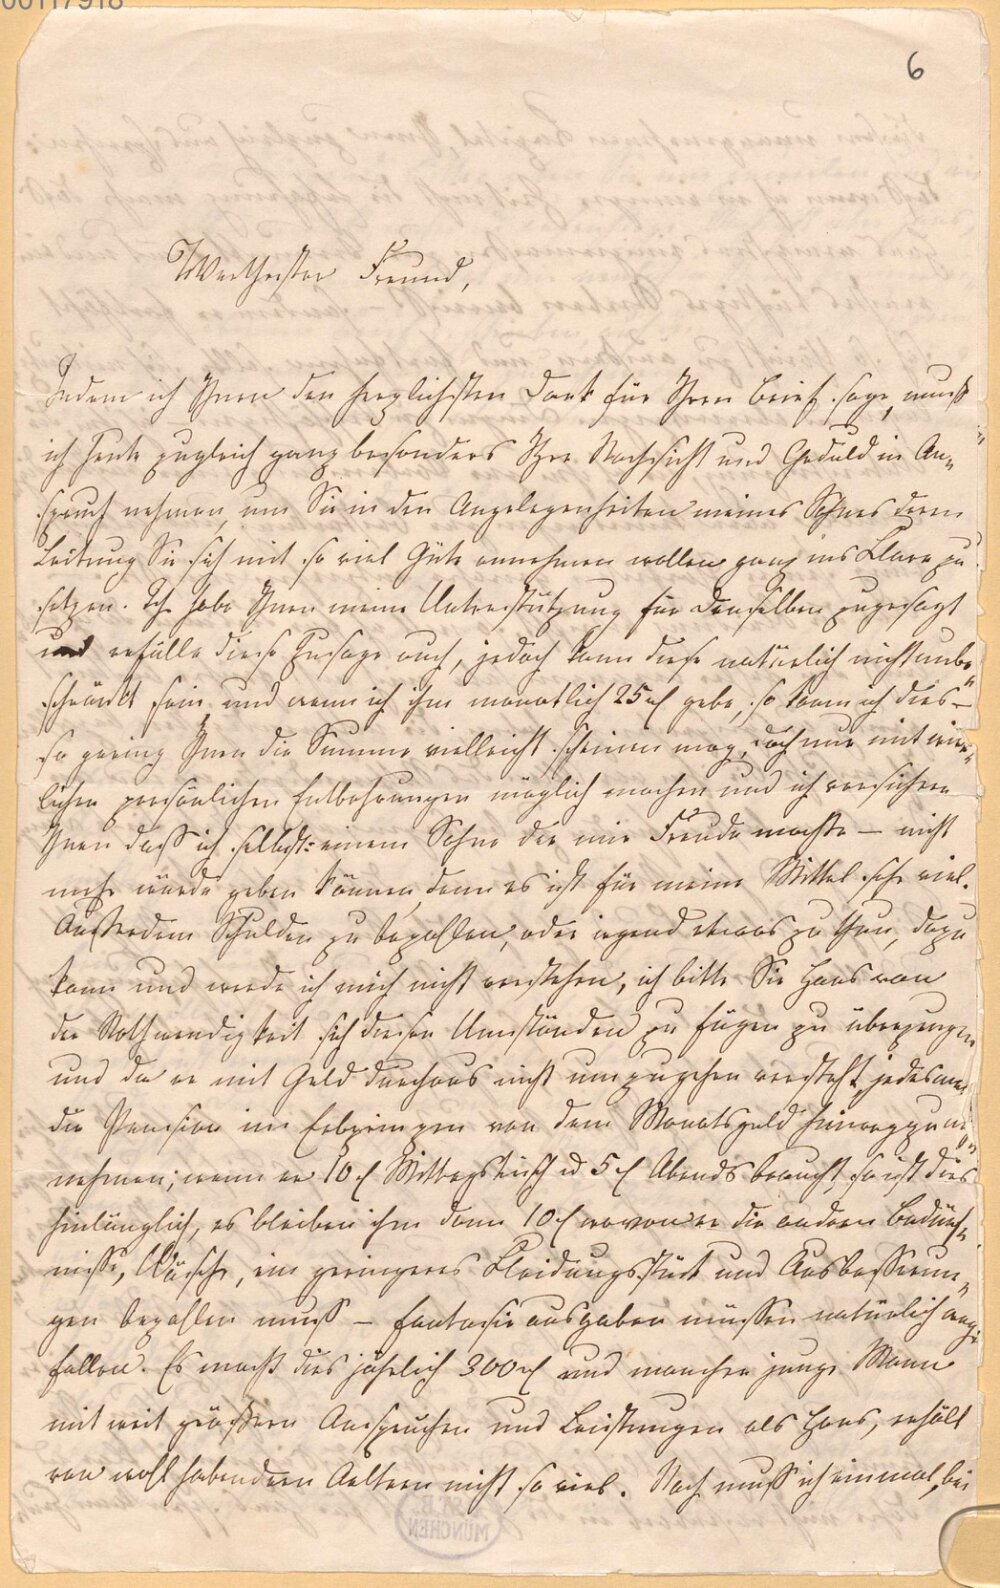 00117918
6
Werthester Freund,
Indem ich Ihnen den herzlichsten Dank für Ihren Brief sage, muß
ich heute zugleich ganz besonders Ihre Nachsicht und Geduld in An-
spruch nehmen, um Sie in den Angelegenheiten meines Sohnes deren
Leitung Sie sich mit so viel Güte annehmen wollen ganz ins Klare zu
setzen. Ich habe Ihnen meine Unterstützung für denselben zugesagt
und erfülle diese Zusage auch, jedoch kann diese natürlich nicht unbe-
schränkt sein, und wenn ich ihm monatlich 25 f gebe, so kann ich dies –
so gering Ihnen die Summe vielleicht scheinen mag, doch nur mit wirk-
lichen persönlichen Entbehrungen möglich machen und ich versichere
Ihnen dass ich selbst einem Sohne der mir Freude machte – nicht
mehr würde geben können, denn es ist für meine Mittel sehr viel.
Außerdem Schulden zu bezahlen, oder irgend etwas zu thun, dazu
kann und werde ich mich nicht verstehen, ich bitte Sie Hans von
der Nothwendigkeit sich diesen Umständen zu fügen zu überzeugen
und da er mit Geld durchaus nicht umzugehen versteht, jedesmal
die Pension im Erbprinzen von dem Monatsgeld hinwegzu-
nehmen; wenn er 10 f Mittagstisch u 5 f Abends braucht, so ist dies
hinlänglich, es bleiben ihm dann 10 f wovon er die andern Bedürf-
nisse, Wäsche, ein geringeres Kleidungsstück und Ausbesserun-
gen bezahlen muss – Fantasieausgaben müssen natürlich weg-
fallen. Es macht dies jährlich 300 f und mancher junge Mann
mit weit größern Ansprüchen und Leistungen als Hans, erhält
von wohlhabendern Aeltern nicht so viel. Noch muss ich einmal, bei
MÜNCHEN